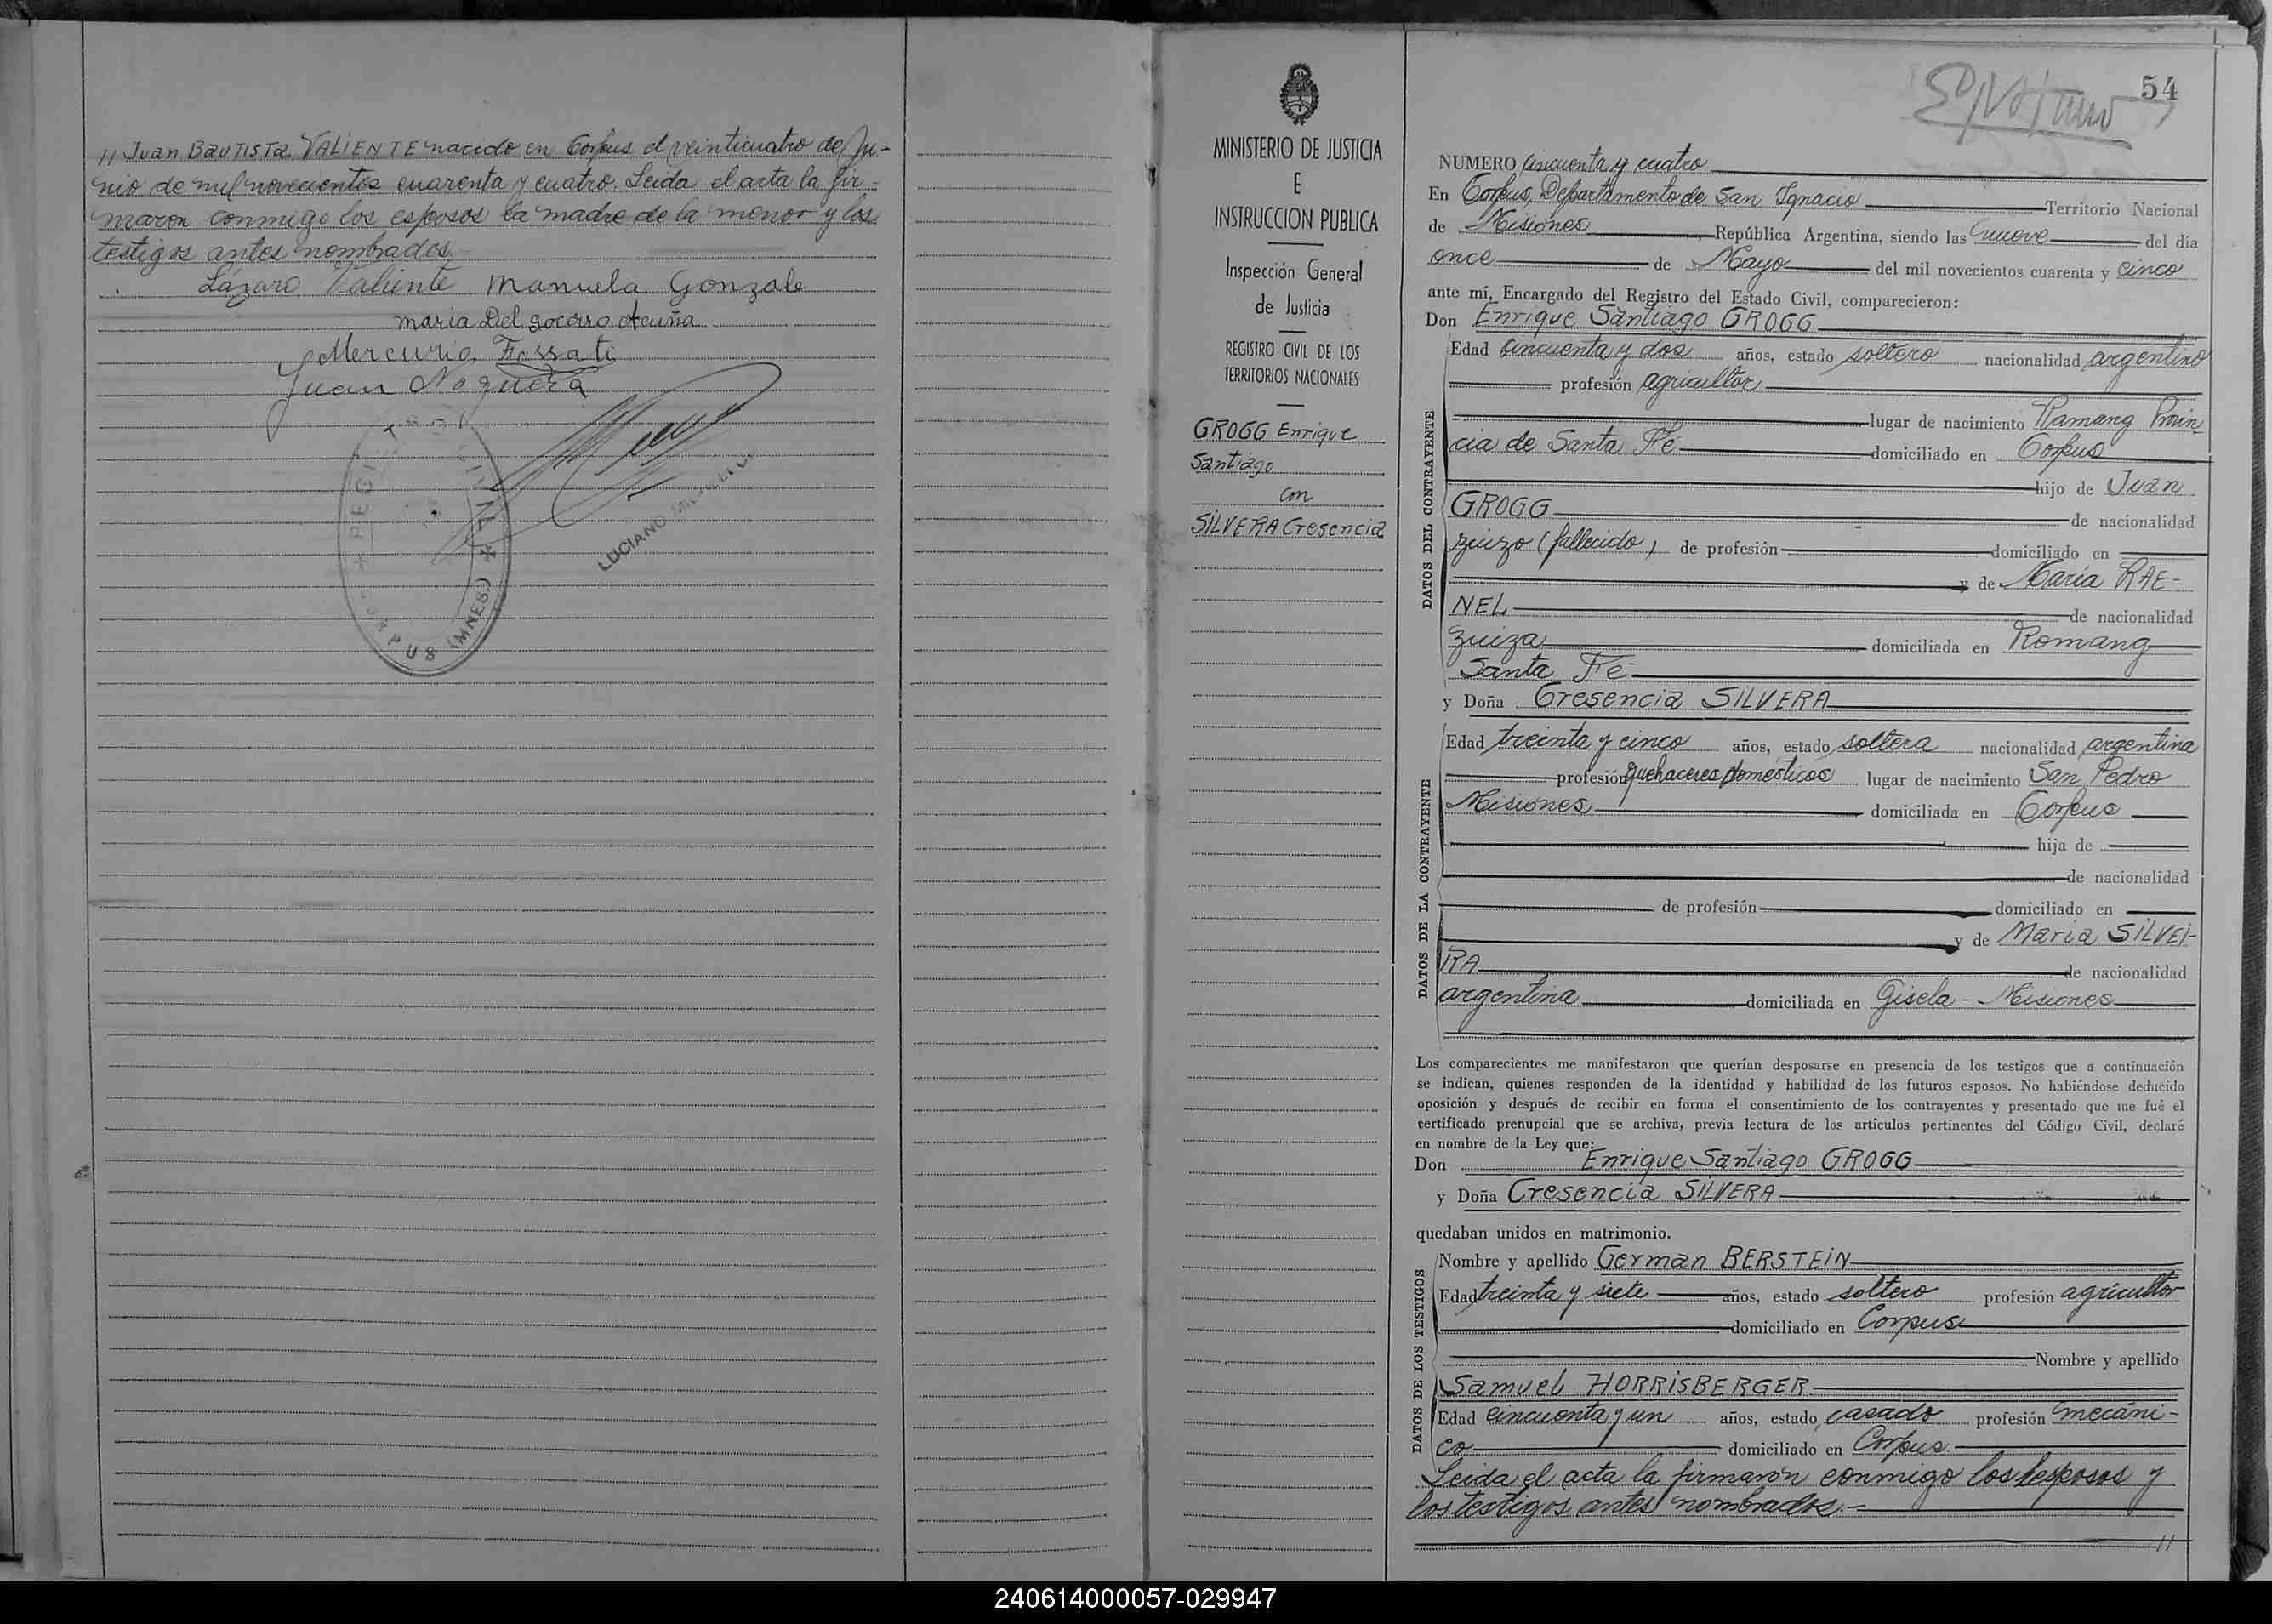 // Juan Bautista VALIENTE nacido en Corpus el veinticuatro de Ju-
nio de mil novecientos cuarenta y cuatro. Leida el acta la fir-
maron conmigo los esposos la madre de la menor y los
testigos antes nombrados.
Lázaro Valiente Manuela Gonzale
maria Del Socorro Acuña
Mercurio Fossati
Juan Noguera
LUCIANO
(MNES)
MINISTERIO DE JUSTICIA
E
INSTRUCCION PUBLICA
Inspección General
de Justicia
REGISTRO CIVIL DE LOS
TERRITORIOS NACIONALES
GROGG Enrique
Santiago
con
SILVERA Cresencia
54
NUMERO Cincuenta y cuatro
En Corpus, Departamento de San Ignacio Territorio Nacional
de Misiones República Argentina, siendo las nueve del día
once de Mayo del mil novecientos cuarenta y cinco
ante mí, Encargado del Registro del Estado Civil, comparecieron:
Don Enrique Santiago GROGG
DATOS DEL CONTRAYENTE
Edad cincuenta y dos años, estado soltero nacionalidad argentino
profesión agricultor
lugar de nacimiento Ramang Provin
cia de Santa Fé domiciliado en Corpus
hijo de Juan
GROGG de nacionalidad
zuizo (fallecido) de profesión domiciliado en
y de María RAE-
NEL de nacionalidad
zuiza domiciliada en Romang
Santa Fé
y Doña Cresencia SILVERA
DATOS DE LA CONTRAYENTE
Edad treinta y cinco años, estado soltera nacionalidad argentina
profesión quehaceres domésticos lugar de nacimiento San Pedro
Misiones domiciliada en Corpus
hija de
de nacionalidad
de profesión domiciliado en
y de Maria SILVEI-
RA de nacionalidad
argentina domiciliada en Gisela - Misiones
Los comparecientes me manifestaron que querían desposarse en presencia de los testigos que a continuación
se indican, quienes responden de la identidad y habilidad de los futuros esposos. No habiéndose deducido
oposición y después de recibir en forma el consentimiento de los contrayentes y presentado que me fué el
certificado prenupcial que se archiva, previa lectura de los artículos pertinentes del Código Civil, declaré
en nombre de la Ley que:
Don Enrique Santiago GROGG
y Doña Cresencia SILVERA
quedaban unidos en matrimonio.
DATOS DE LOS TESTIGOS
Nombre y apellido German BERSTEIN
Edad treinta y siete años, estado soltero profesión agricultor
domiciliado en Corpus
Nombre y apellido
Samuel HORRISBERGER
Edad cincuenta y un años, estado casado profesión mecáni-
co domiciliado en Corpus.
Leida el acta la firmarón conmigo los esposos y
los testigos antes nombrados.-
//
240614000057-029947